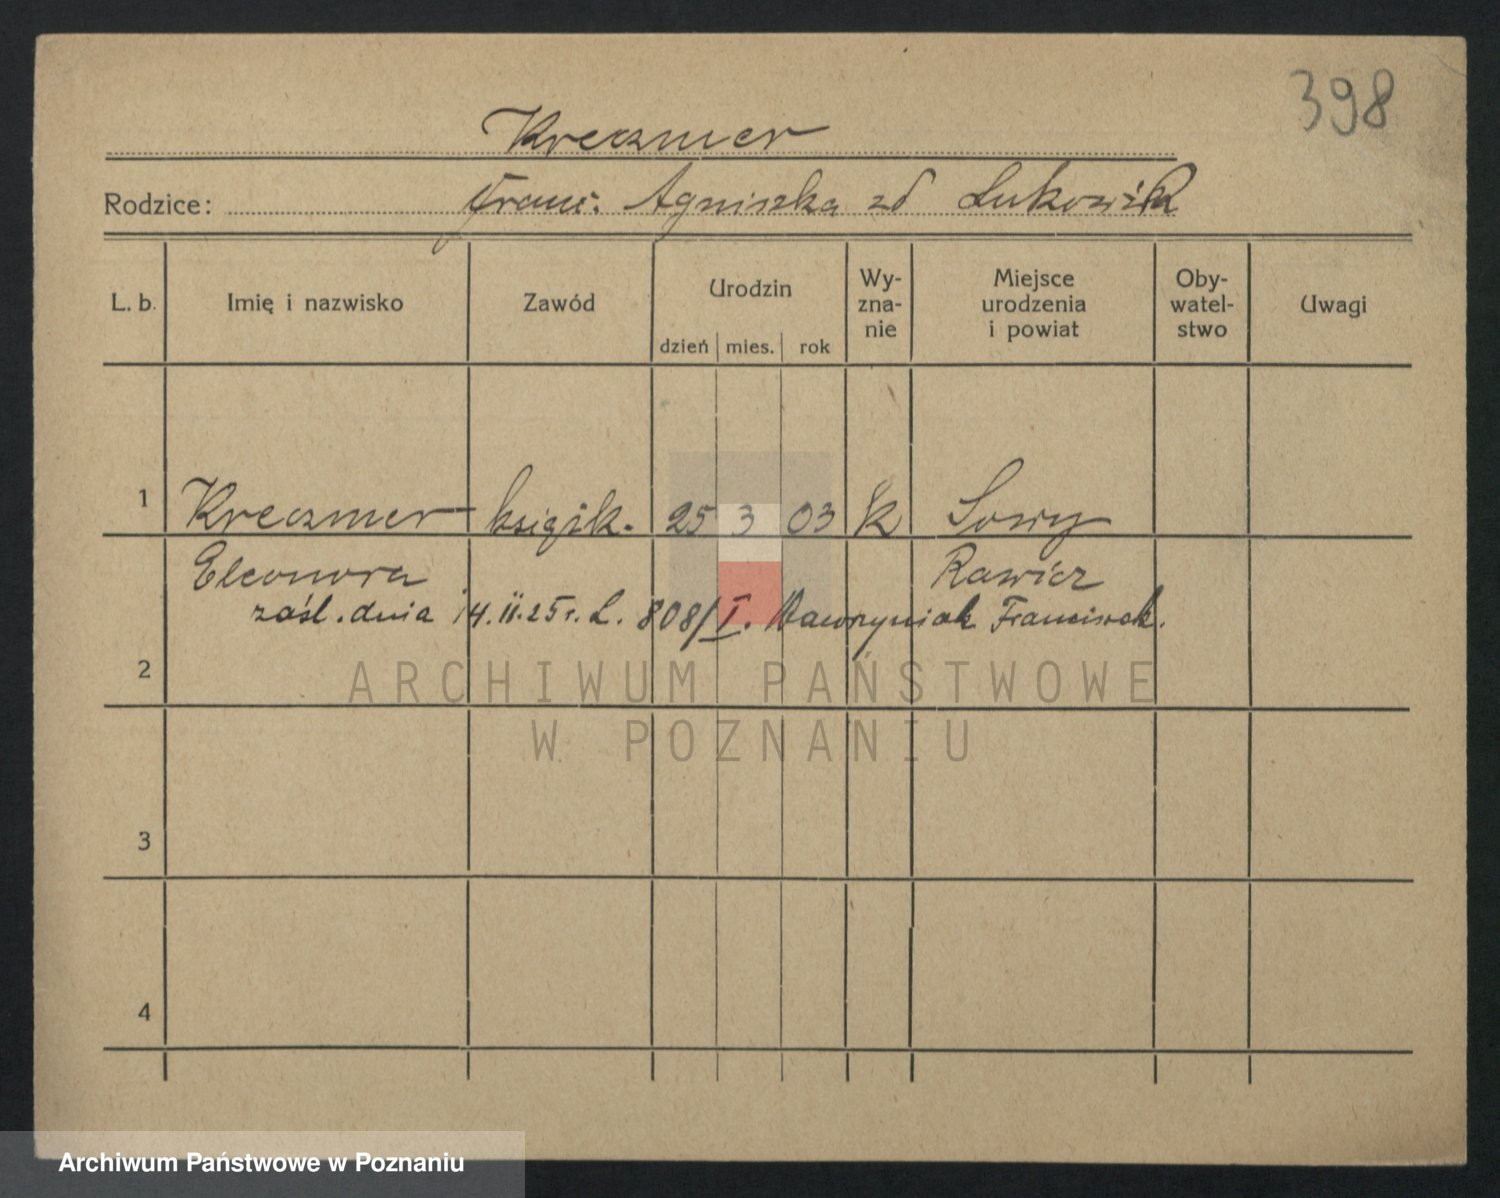 398
Kreczmer
Rodzice: Franc. Agnieszka zd
L. b. Imię i nazwisko Zawód Urodzin dzień mies. rok Wy-zna-nie Miejsce urodzenia i powiat Oby-watel-stwo Uwagi
1 Kreczmer 25 3 03 k Sowy
Eleonora Rawicz
zaśl. dnia 14.II.25 r. L. 808/I. Wawrzyniak Franciszek.
2
ARCHIWUM PAŃSTWOWE
W POZNANIU
3
4
Archiwum Państwowe w Poznaniu